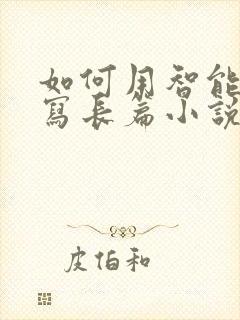 如何用智能
寫長篇小說
皮伯和